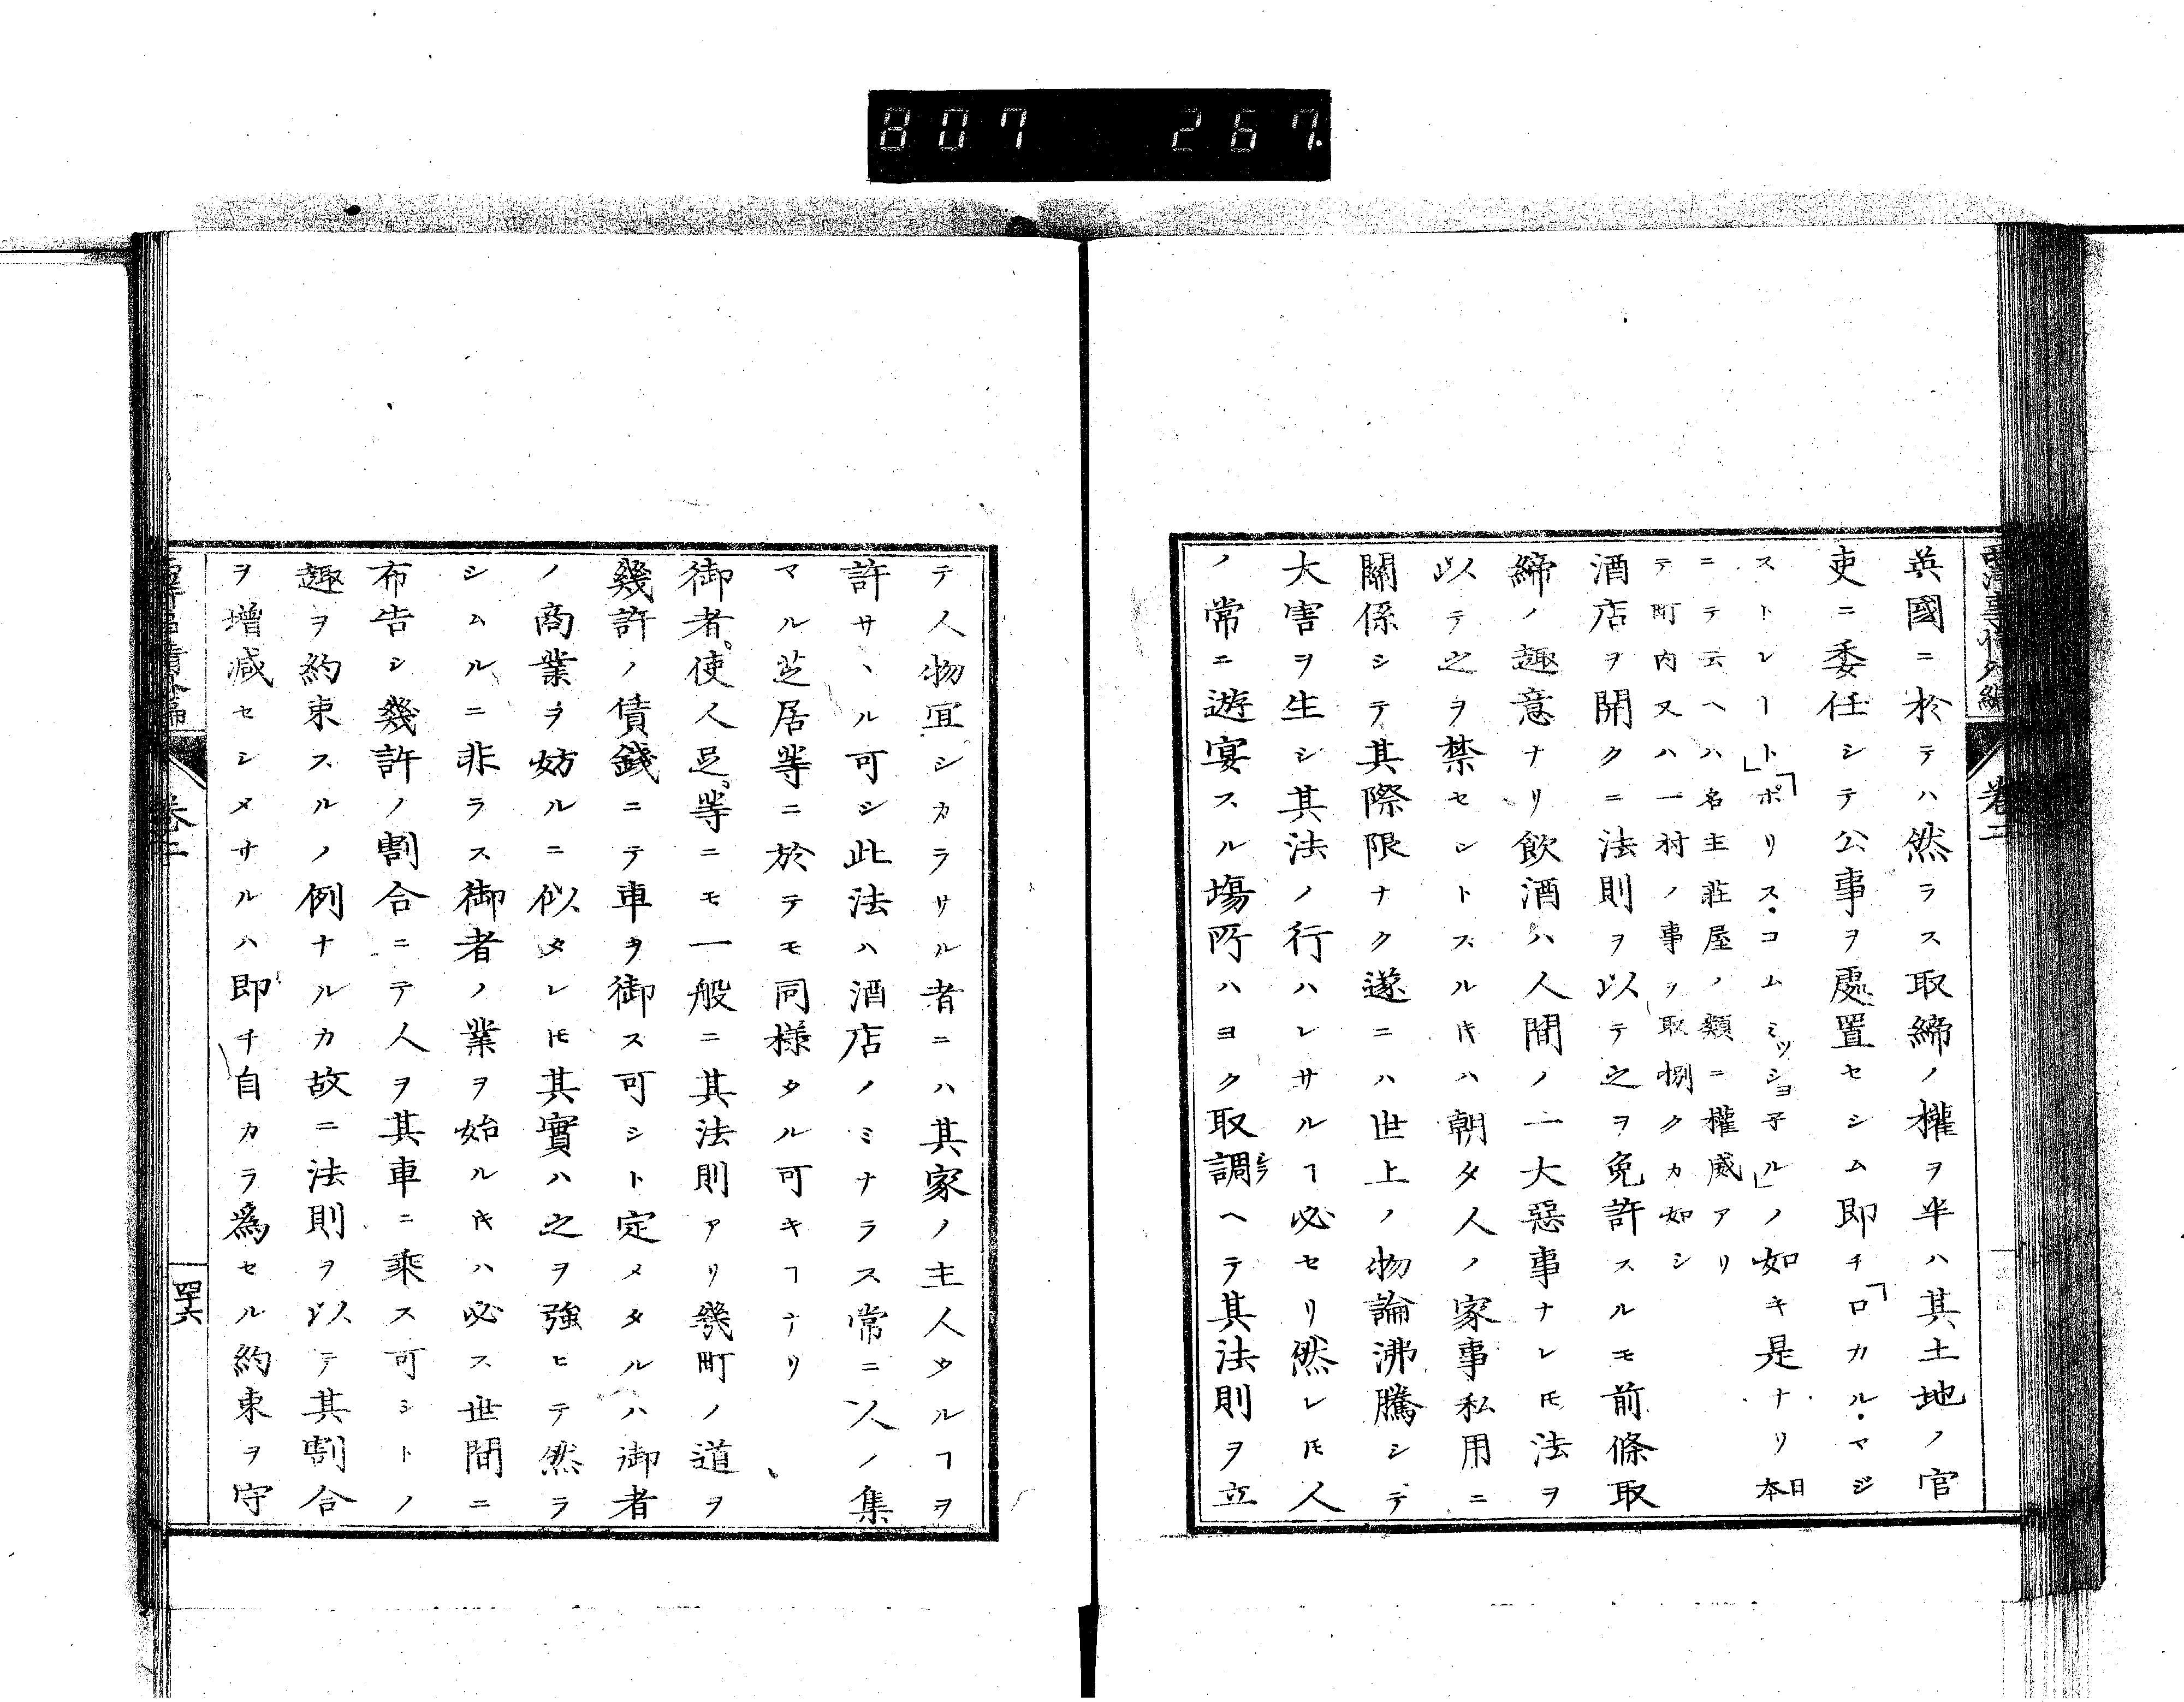 807 267.
西洋事情外編 卷二
英國ニ於テハ然ラス取締ノ權ヲ半ハ其土地ノ官
吏ニ委任シテ公事ヲ處置セシム即チ「ロカル・マジ
ストレート」「ポリス・コムミッショ子ル」ノ如キ是ナリ日本
ニテ云ヘハ名主莊屋ノ類ニ權威アリ
テ町内又ハ一村ノ事ヲ取捌クカ如シ
酒店ヲ開クニ法則ヲ以テ之ヲ免許スルモ前條取
締ノ趣意ナリ飲酒ハ人間ノ一大惡事ナレ𪜈法ヲ
以テ之ヲ禁セントスルキハ朝夕人ノ家事私用ニ
關係シテ其際限ナク遂ニハ世上ノ物論沸騰シテ
大害ヲ生シ其法ノ行ハレサルヿ必セリ然レ𪜈人
ノ常ニ遊宴スル塲所ハヨク取調ヘテ其法則ヲ立
テ人物宜シカラサル者ニハ其家ノ主人タルヿヲ
許サヽル可シ此法ハ酒店ノミナラス常ニ人ノ集
マル芝居等ニ於テモ同樣タル可キヿナリ
御者。使人足。等ニモ一般ニ其法則アリ幾町ノ道ヲ
幾許ノ債錢ニテ車ヲ御ス可シト定メタルハ御者
ノ商業ヲ妨ルニ似タレ𪜈其實ハ之ヲ強ヒテ然ラ
シムルニ非ラス御者ノ業ヲ始ルキハ必ス世間ニ
布告シ幾許ノ割合ニテ人ヲ其車ニ乘ス可シトノ
趣ヲ約束スルノ例ナルカ故ニ法則ヲ以テ其割合
ヲ增减セシメサルハ即チ自カラ爲セル約束ヲ守
卷二
四十六